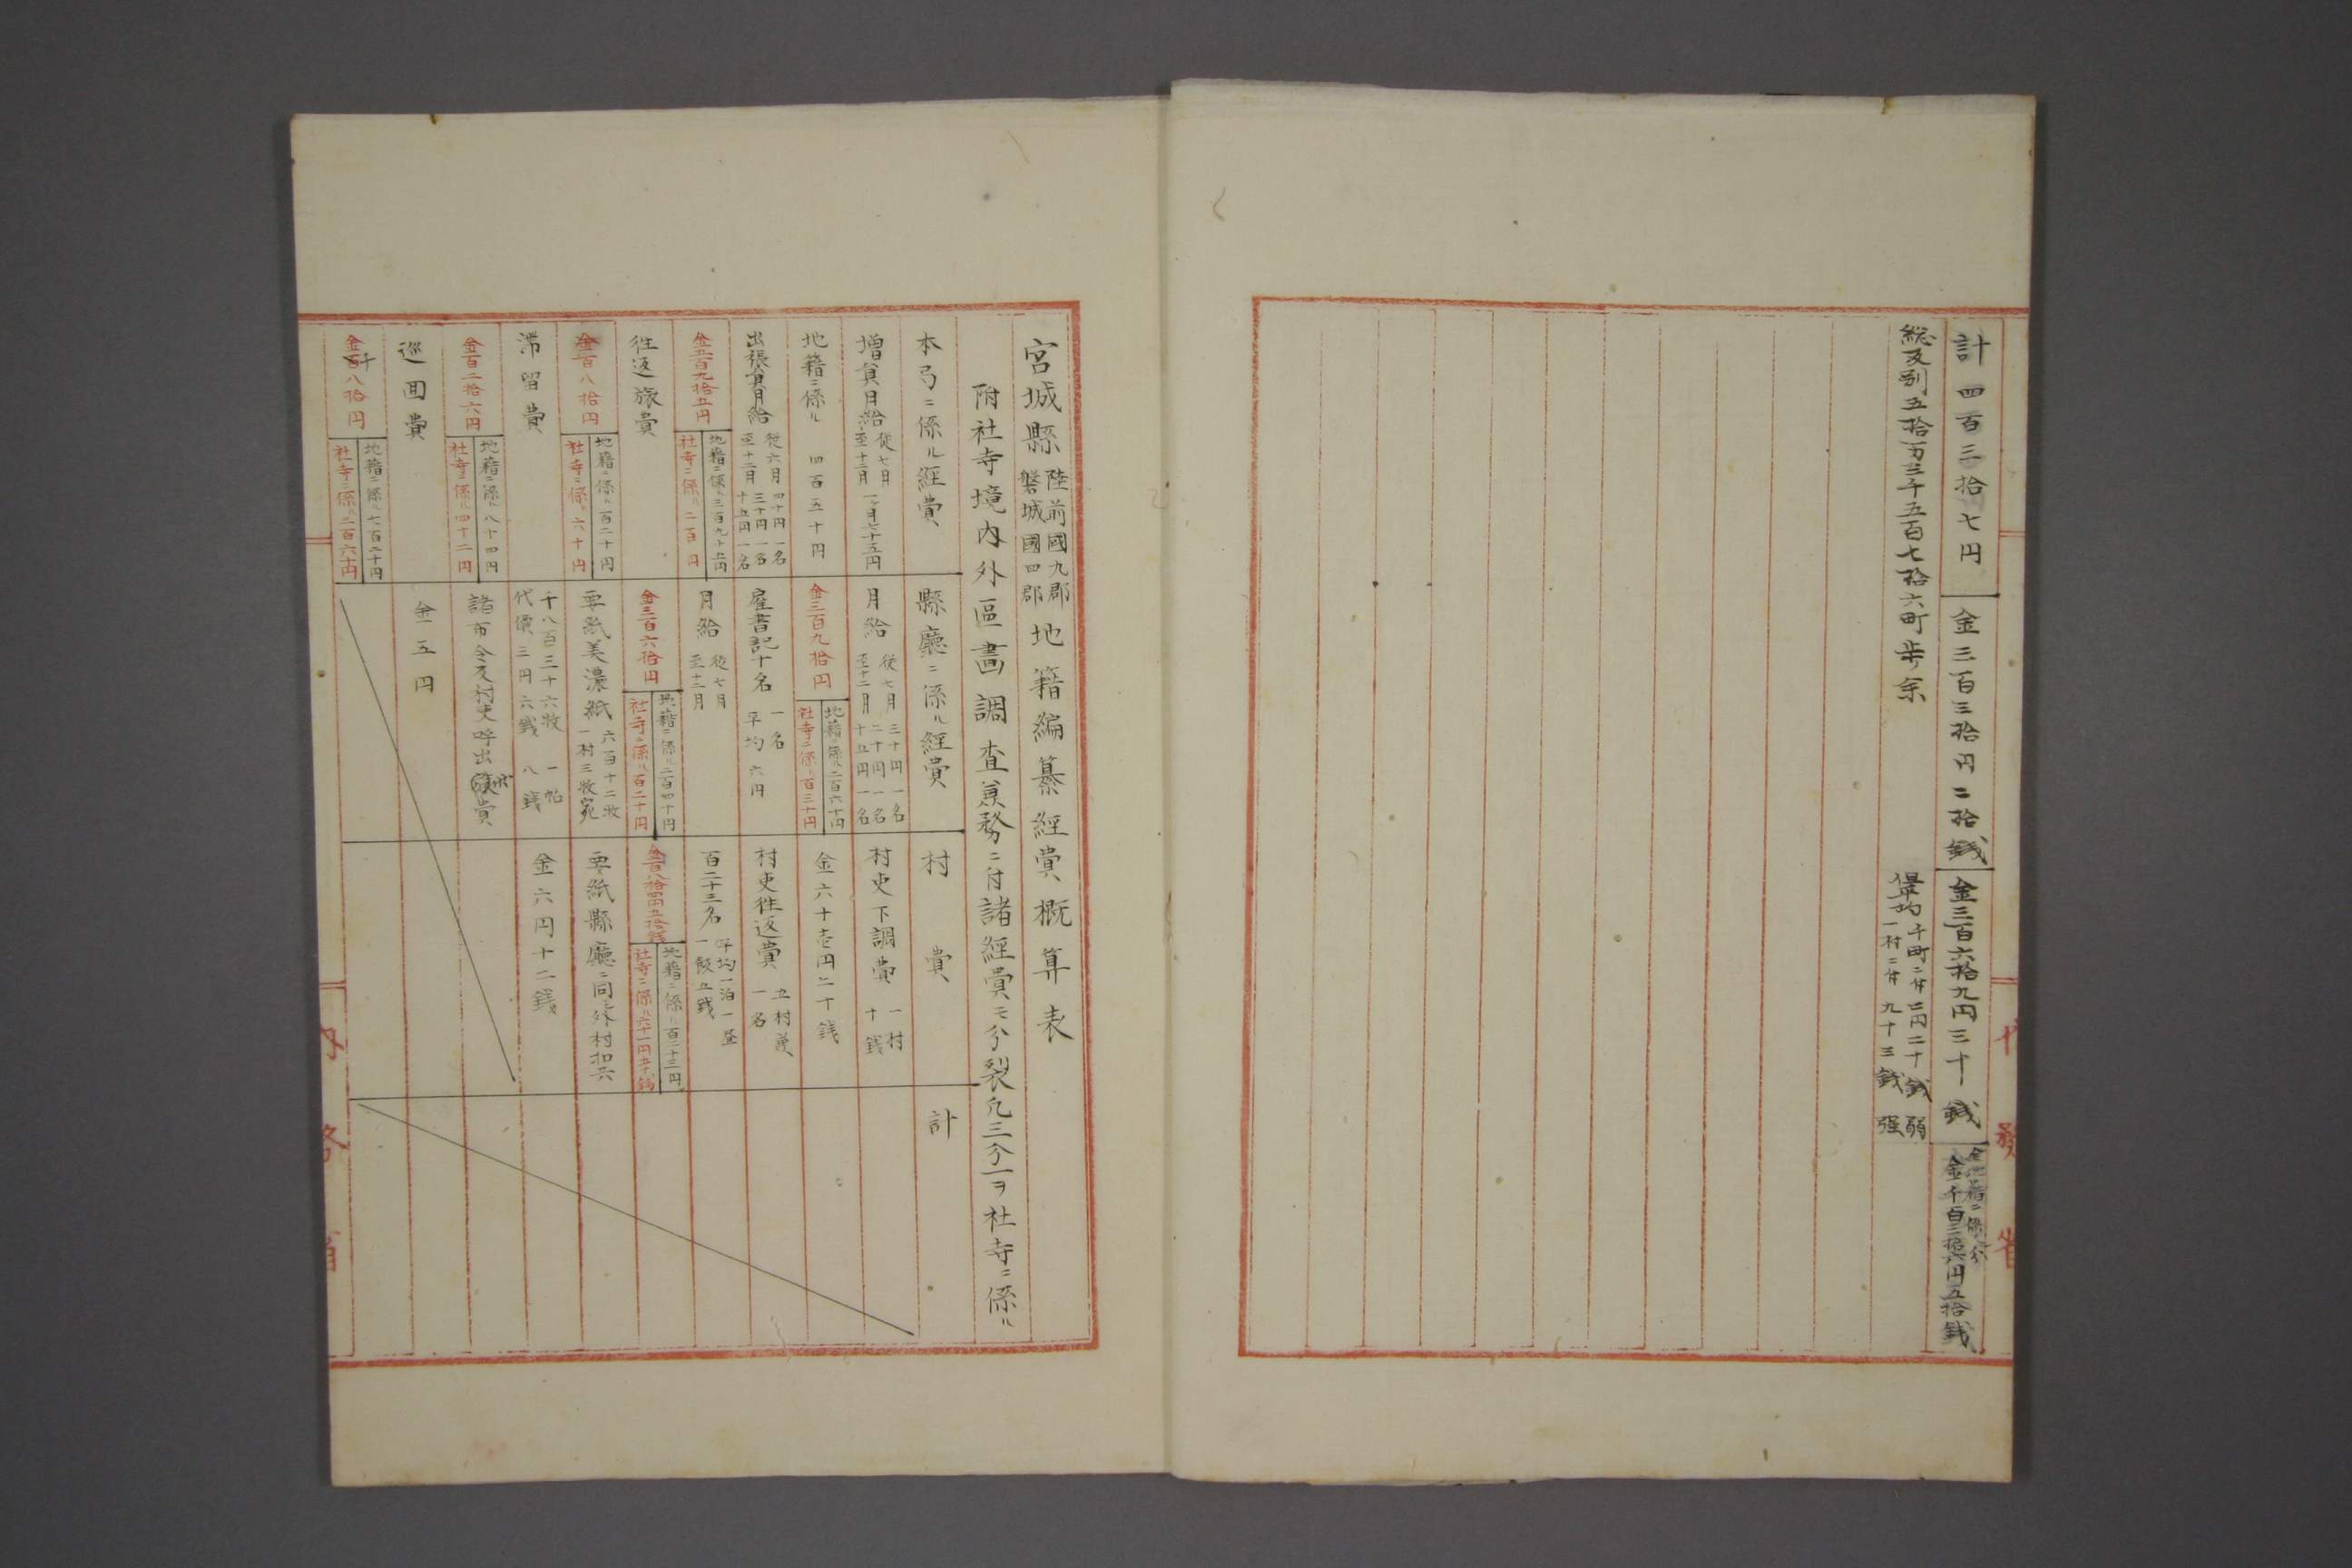 計四百三拾七円
金三百三拾円二拾銭
金三百六拾九円三十銭
金千百三拾六円五拾銭
総反別五拾万三千五百七拾六町歩余
平均千町ニ付二円二十銭弱
一村ニ付九十三銭強
内務省
宮城縣陸前國九郡
磐城國四郡
地籍編纂經費概算表
附社寺境内外區畫調査兼務ニ付諸經費モ分裂凡三分一ヲ社寺ニ係ル
本局ニ係ル經費
縣廳ニ係ル經費
村費
計
増員月給
従七月
至十二月
一ヶ月七十五円
月給
従七月
至十二月
三十円一名
二十円一名
十五円一名
村吏下調費
一村
十銭
地籍ニ係ル
四百五十円
金三百九拾円
地籍ニ係ル二百六十円
社寺ニ係ル百三十円
金六十壱円二十銭
出張員月給
従六月
至十二月
四十円一名
三十円一名
十五円一名
雇書記十名
一名
平均六円
村吏往返費
五村兼
一名
金五百九拾五円
地籍ニ係ル三百九十五円
社寺ニ係ル二百円
月給
従七月
至十二月
百二十三名
平均一泊一昼
一飯五銭
往返旅費
金三百六拾円
地籍ニ係ル二百四十円
社寺ニ係ル百二十円
金百八拾四円五拾銭
地籍ニ係ル百二十三円
社寺ニ係ル六十一円五十銭
金百八拾円
地籍ニ係ル百二十円
社寺ニ係ル六十円
要紙美濃紙
六百十二枚
一村三枚宛
要紙縣廳ニ同シ外村扣共
滞留費
千八百三十六枚
一帖
代價三円六銭
八銭
金六円十二銭
金百二拾六円
地籍ニ係ル八十四円
社寺ニ係ル四十二円
諸布令及村吏呼出費
巡回費
金五円
金千八拾円
地籍ニ係ル七百二十円
社寺ニ係ル三百六十円
内務省